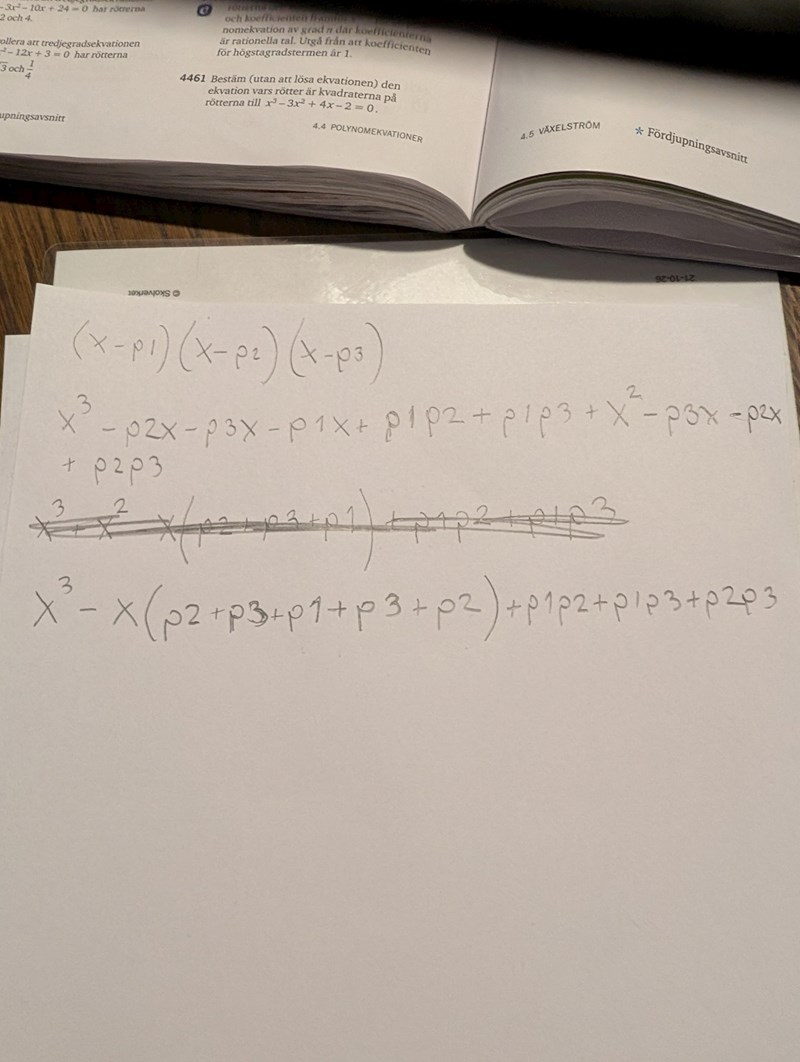 -3x² - 10x + 24 = 0 har rötterna
2 och 4.
ollera att tredjegradsekvationen
² - 12x + 3 = 0 har rötterna
3 och 1/4
upningsavsnitt
och koefficienten
nomekvation av grad n där koefficienterna
är rationella tal. Utgå från att koefficienten
för högstagradstermen är 1.
4461 Bestäm (utan att lösa ekvationen) den
ekvation vars rötter är kvadraterna på
rötterna till x³ - 3x² + 4x - 2 = 0.
4.4 POLYNOMEKVATIONER
4.5 VÄXELSTRÖM
* Fördjupningsavsnitt
© Skolverket
21-10-26
(x-p1)(x-p2)(x-p3)
x³ - p2x - p3x - p1x + p1p2 + p1p3 + x² - p3x - p2x
+ p2p3
x³ + x² - x(p2 + p3 + p1) + p1p2 + p1p3
x³ - x(p2 + p3 + p1 + p3 + p2) + p1p2 + p1p3 + p2p3